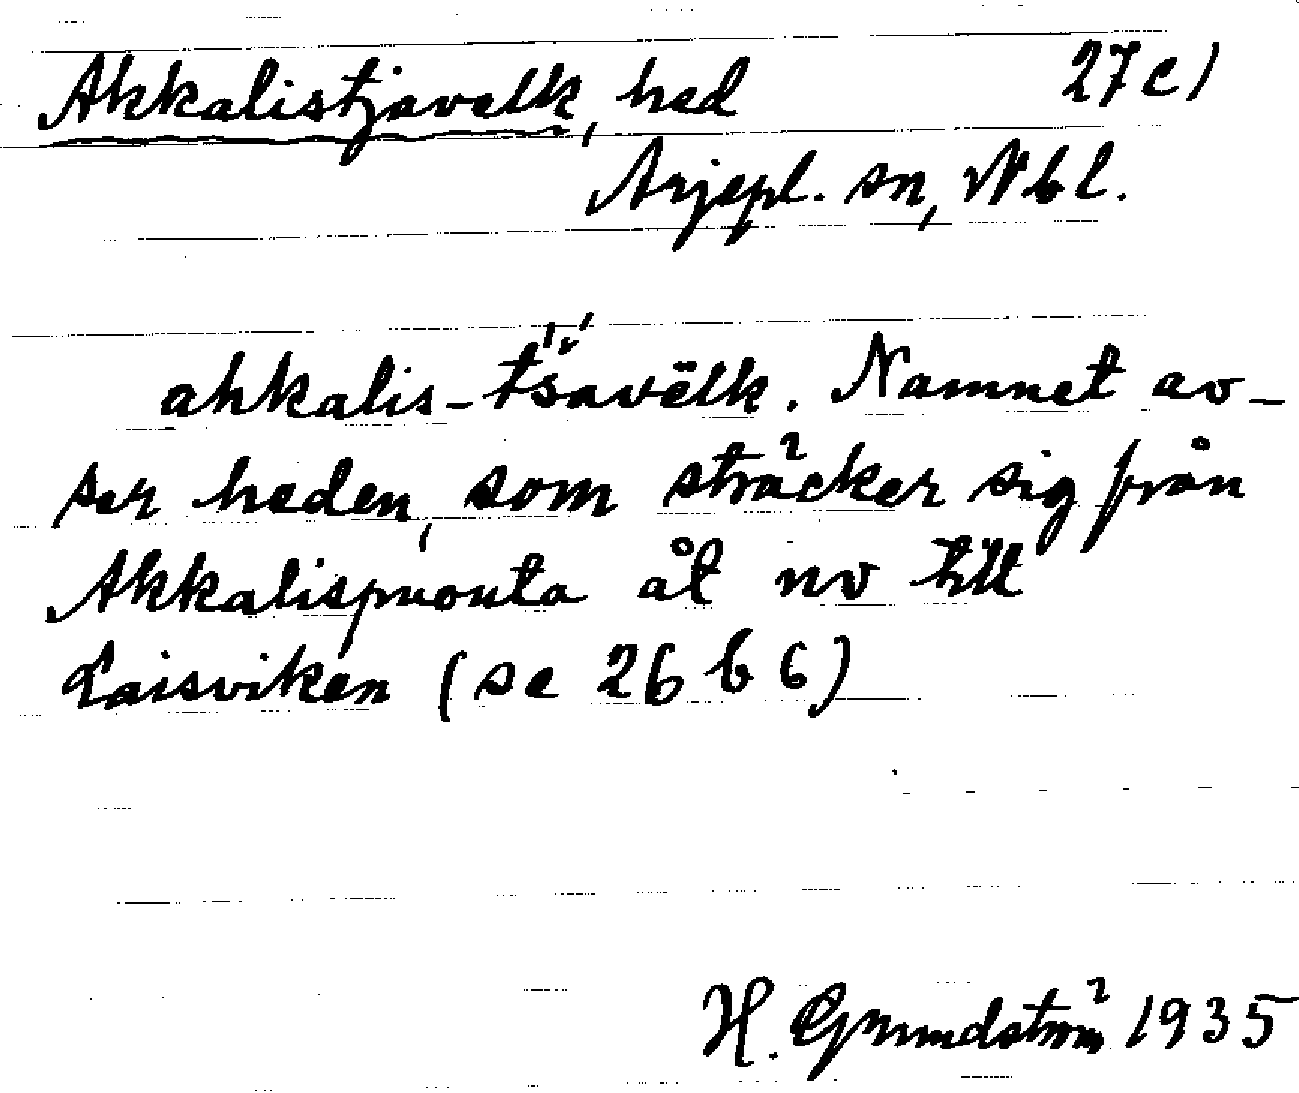 Akkalistjavelk, hed 27 c)
Arjepl. sn, Nbl.
ahkalis-tšavēlk. Namnet av-
ser heden, som sträcker sig från
Akkalispuouta åt nv till
Laisviken (se 26 b 6)
H. Grundström 1935